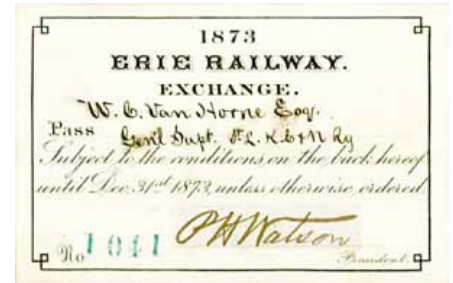 1873
ERIE RAILWAY.
EXCHANGE.
W. C. Van Horne Esq.
Pass Genl Supt. St. L. K. C & N Ry
Subject to the conditions on the back hereof
until Dec. 31st 1873, unless otherwise ordered
No 1041 P H Watson
President.